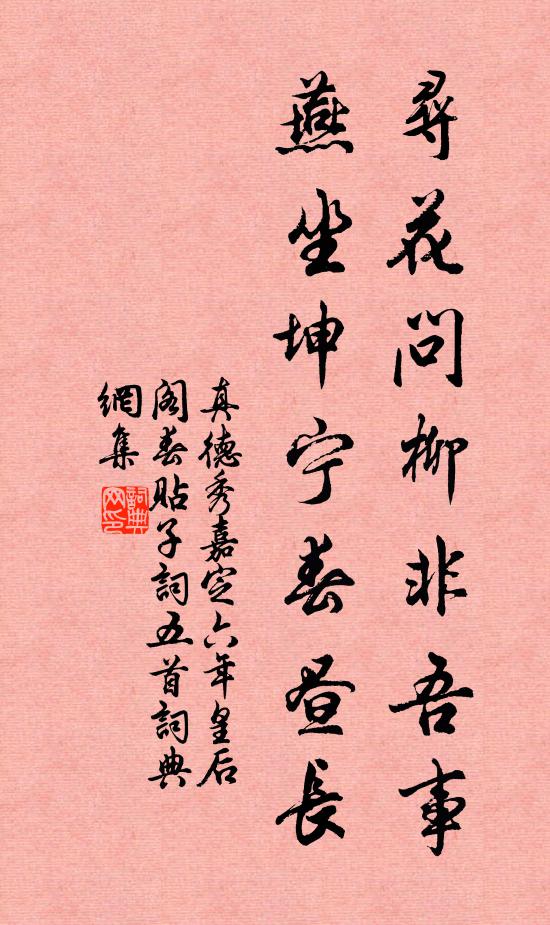 尋花問柳非吾事
燕坐坤宁春昼長
真德秀嘉定六年皇后
阁春贴子詞五首詞典
網集
詞典
网印